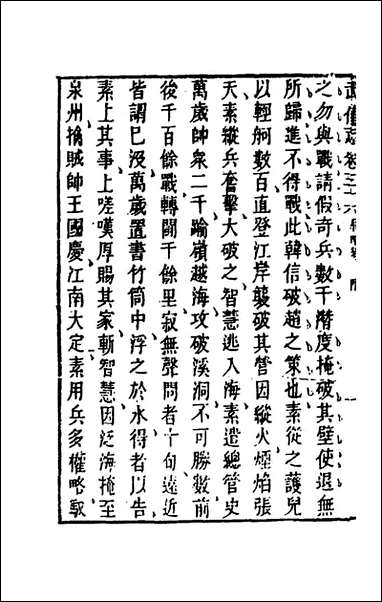 武備志卷三十六
之勿與戰請假奇兵數千潛度掩破其壁使退無
所歸進不得戰此韓信破趙之策也素從之護兒
以輕舸數百直登江岸襲破其營因縱火煙焰張
天素縱兵奮擊大破之智慧逃入海素遣總管史
萬歲帥衆二千踰嶺越海攻破溪洞不可勝數前
後千百餘戰轉鬬千餘里寂無聲問者十旬遠近
皆謂已沒萬歲置書竹筒中浮之於水得者以告
素上其事上嗟嘆厚賜其家斬智慧因泛海掩至
泉州擒賊帥王國慶江南大定素用兵多權略馭